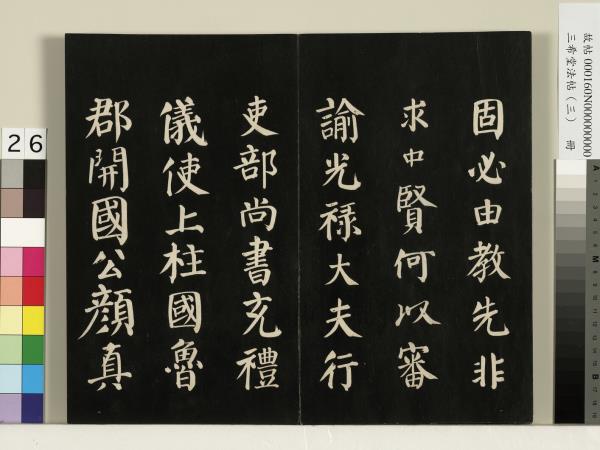 固必由教先非
求中賢何以審
諭光祿大夫行
吏部尚書充禮
儀使上柱國魯
郡開國公顏真
故帖 000160N000000000
三希堂法帖(三) 冊
26